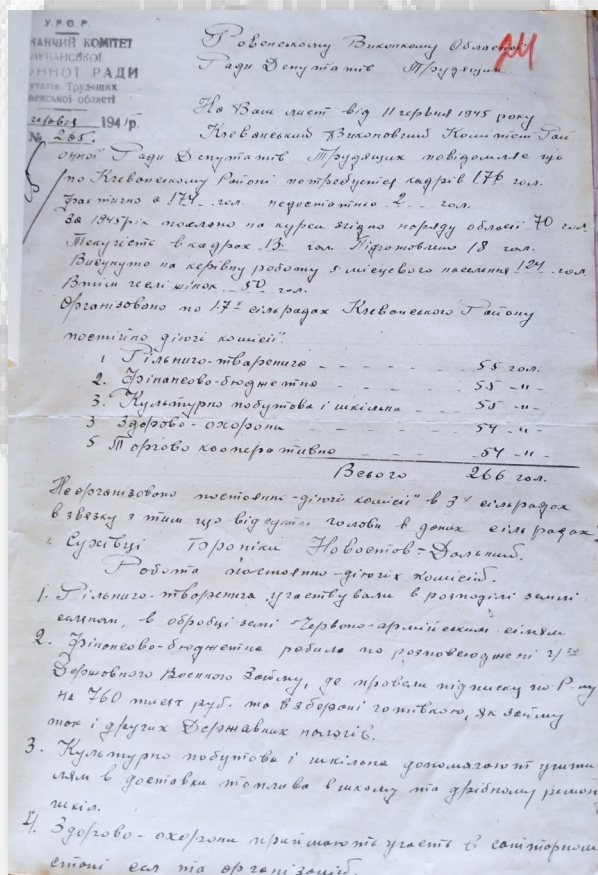 У.Р.О.Р.
КОМІТЕТ
РАДИ
Трудящих
області
194 р.
№ 265.
24
Ровенському Виконкому Обласної
Ради Депутатів Трудящих
На Ваш лист від 11 червня 1945 року
Клеванський Виконавчий Комітет Рай
онної Ради Депутатів Трудящих повідомляє що
по Клеванському Районі потребуется кадрів 176 гол.
фактично є 174 гол. недостатньо 2 гол.
За 1945 рік послано на курси згідно наряду області 70 гол.
Текучість в кадрах 13 гол. Підготовлено 18 гол.
Висунуто на керівну роботу з місцевого населення 124 гол.
В тім числі жінок 50 гол.
Організовано по 17и сільрадах Клеванського Району
постійно діючі комісії:
1 Рільничо-тваренича - - - - - 55 гол.
2. Фінансово-бюджетна - - - - - 55 -"-
3. Культурно побутова і шкільна - - - - 55 -"-
3 Здорово-охорони - - - - - 54 -"-
5 Торгово кооперативно 54 -"-
Всього 266 гол.
Неорганізовано постоянно-діючі комісії в 3х сільрадах
в звязку з тим що відсутні голови в даних сільрадах
Сухівці Грапіки Новостав-Дальний.
Робота постоянно-діючіх комісій.
1. Рільничо-тваренича участвували в розподілі землі
селянам, в обробці землі Червоно-армійським сімям
2. Фінансово-бюджетна робила по розповсюджені
Державного Военного Займу, де провели підписку по Р-ну
на 760 тисяч руб. та в зборові готівкою, як займу
так і других Державних
3. Культурно побутова і шкільна допомагають учите
лям в доставки топлива в школу та дрібному ремон
шкіл.
4. Здорово-охорони приймають участь в санітарном
стані сел та організацій.